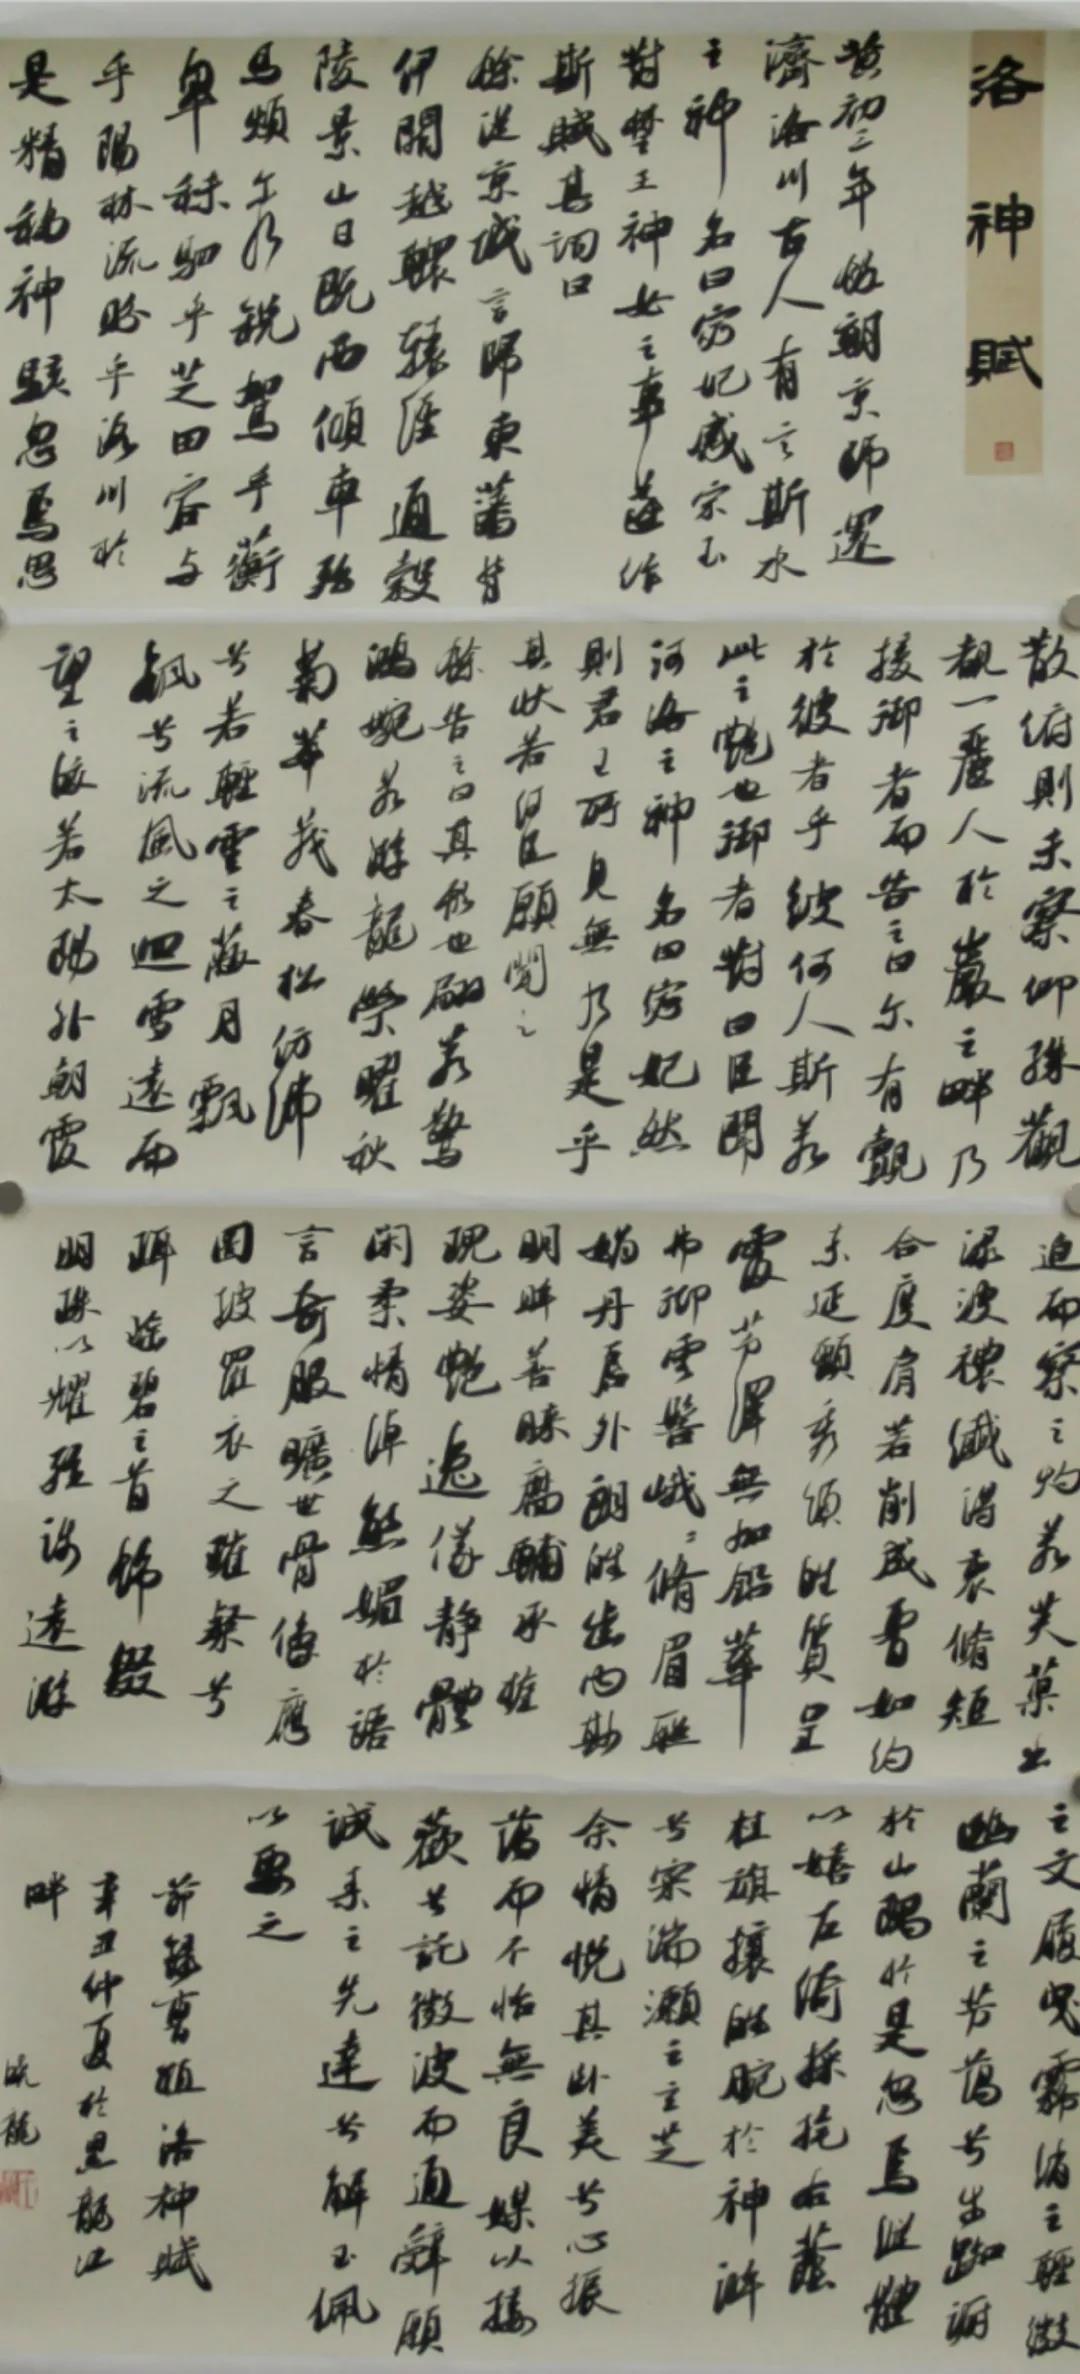 洛神賦
黃初三年余朝京師還
濟洛川古人有言斯水
之神名曰宓妃感宋玉
對楚王神女之事遂作
斯賦其詞曰
餘從京域言歸東藩背
伊闕越轘轅經通轂
陵景山日既西傾車殆
馬煩爾乃稅駕乎蘅
皋秣駟乎芝田容与
乎陽林流眄乎洛川於
是精移神駭忽焉思
散俯則未察仰殊觀
覩一麗人於巖之畔乃
援御者而告之曰尔有覿
於彼者乎彼何人斯若
此之艷也御者對曰臣聞
河洛之神名曰宓妃然
則君王所見無乃是乎
其狀若何臣願聞之
餘告之曰其形也翩若驚
鴻婉若游龍榮曜秋
菊華茂春松仿彿
兮若輕雲之蔽月飄
飖兮流風之迴雪遠而
望之皎若太陽升朝霞
迫而察之灼若芙蕖出
淥波穠纖得衷脩短
合度肩若削成腰如約
素延頸秀項皓質呈
露芳澤無加鉛華
弗御雲髻峨峨脩眉聯
娟丹唇外朗皓齒內鮮
明眸善睞靨輔承權
瑰姿艷逸儀靜體
閑柔情綽態媚於語
言奇服曠世骨像應
圖披羅衣之璀粲兮
珥瑤碧之首飾綴
明珠以耀軀踐遠游
之文履曳霧綃之輕裾微
幽蘭之芳藹兮步踟躕
於山隅於是忽焉縱體
以嬉左倚採旄右蔭
桂旗攘皓腕於神滸
兮采湍瀨之玄芝
余情悅其淑美兮心振
蕩而不怡無良媒以接
歡兮託微波而通辭願
誠素之先達兮解玉佩
以要之
節錄曹植洛神賦
辛丑仲夏於黑龍江
畔